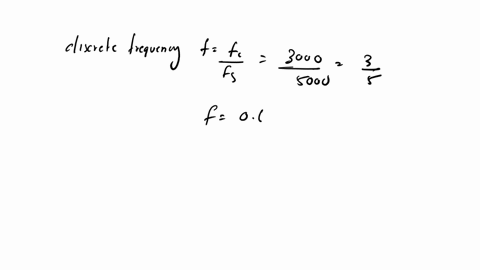 discrete frequency f = fc/Fs = 3000/5000 = 3/5
f = 0.6